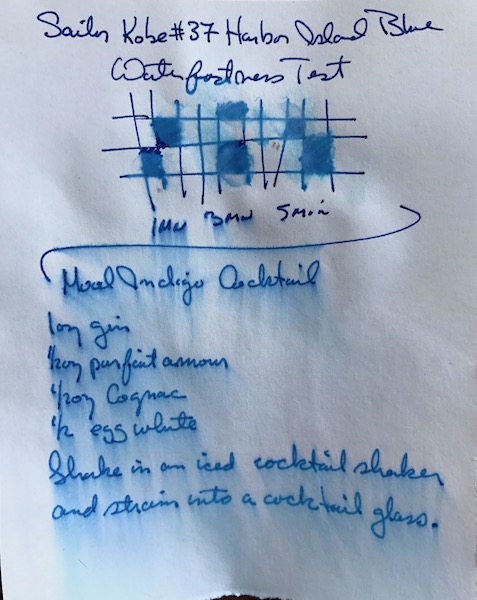 Sailor Kobe #37 Harbor Island Blue
Waterfastness Test
1MN 3MN 5Min
Mood Indigo Cocktail
1oz gin
1/2oz parfait amour
1/2oz Cognac
1/2 egg white
Shake in an iced cocktail shaker
and strain into a cocktail glass.